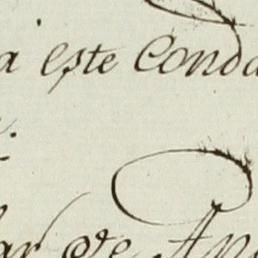 a este Conda
ar de Ap